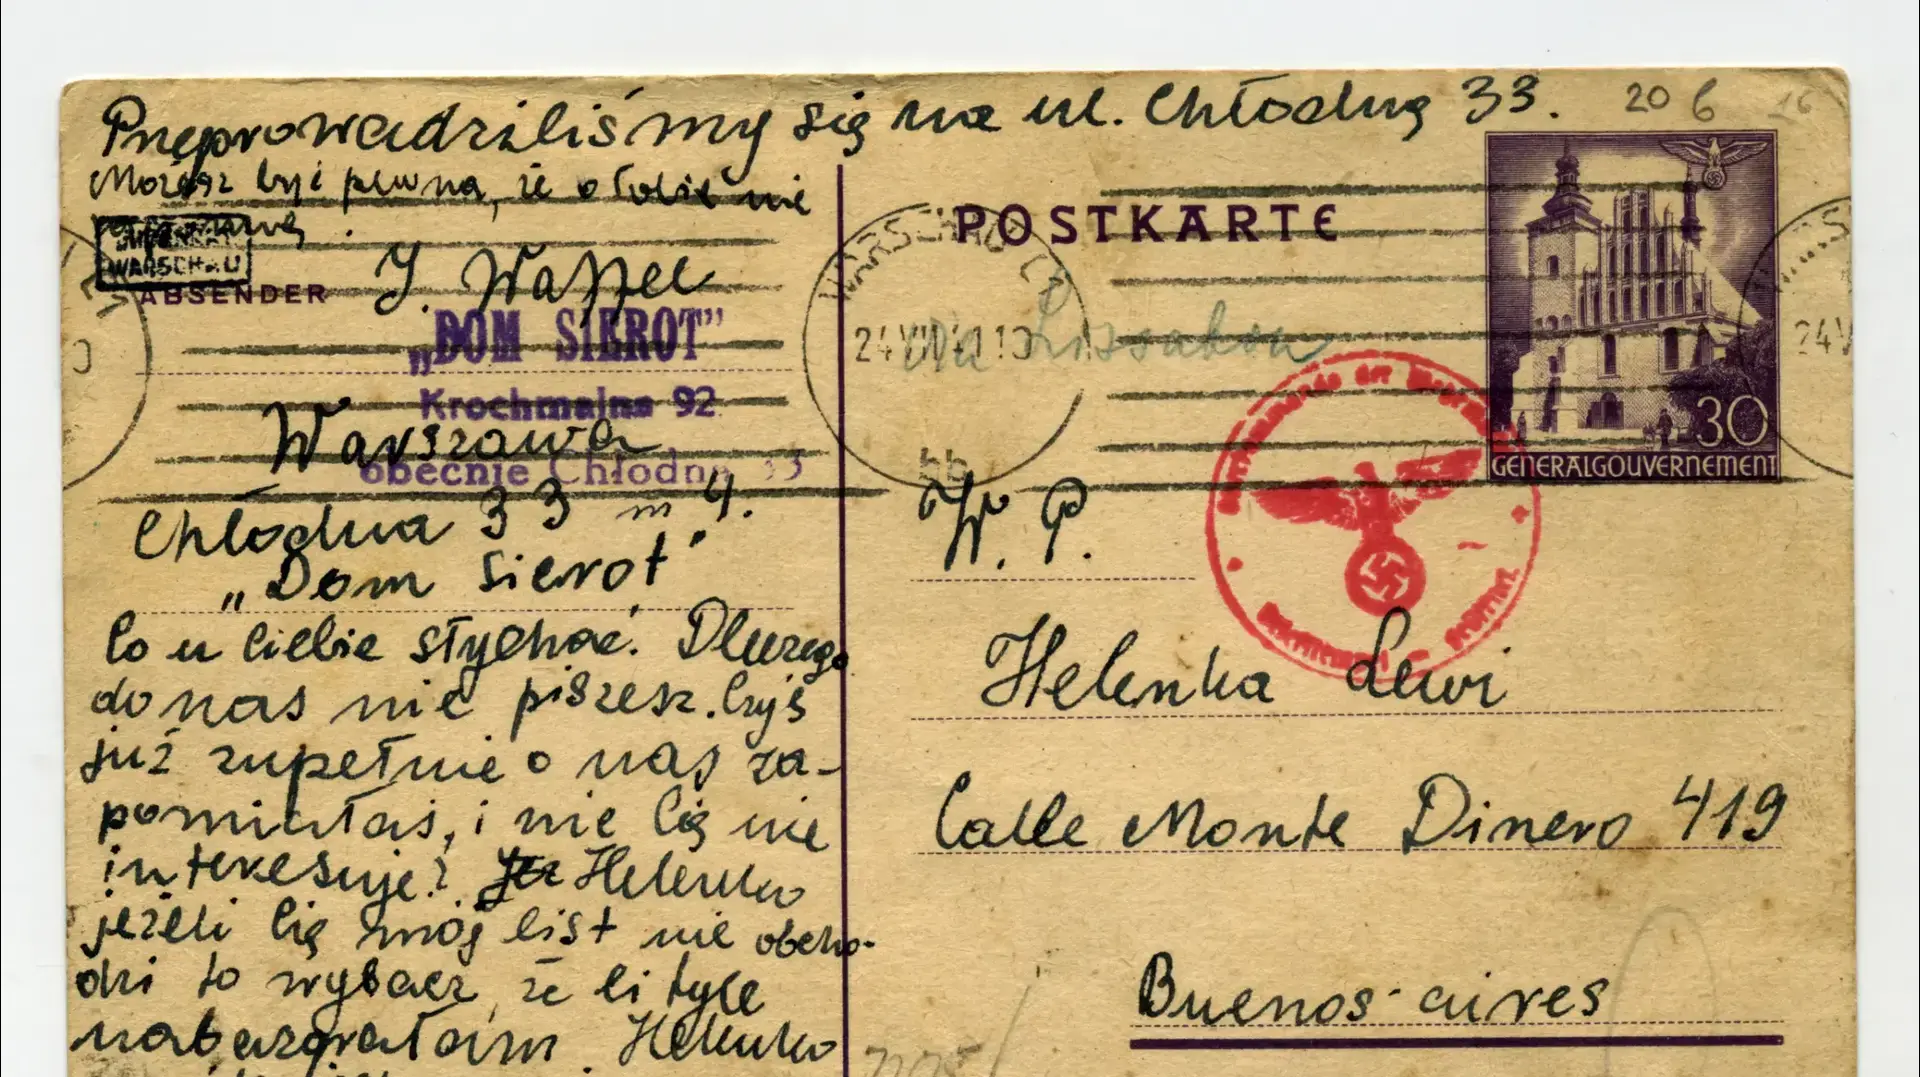 Przeprowadziliśmy się na ul. Chłodną 33.
20 6 16
Możesz być pewna, że o Tobie nie
JUDENRAT
WARSCHAU
ABSENDER
J. Wassel
„DOM SIEROT”
Krochmalna 92
Warszawa
obecnie Chłodna 33
Chłodna 33 m 4.
„Dom Sierot”
Co u Ciebie słychać. Dlurego
do nas nie piszesz. Czyś
już zupełnie o nas za-
pomniałaś, i nic Cię nie
interesuje? Helenko
jeżeli Cię mój list nie obcho-
dzi to wybacz, że Ci tyle
nabazgrałam. Helenko
POSTKARTE
WARSCHAU C1
24 VII 41 10
bb
via Lissabon
30
GENERALGOUVERNEMENT
Oberkommando der Wehrmacht
W. P.
Helenka Lewi
Calle Monte Dinero 419
Buenos-aires